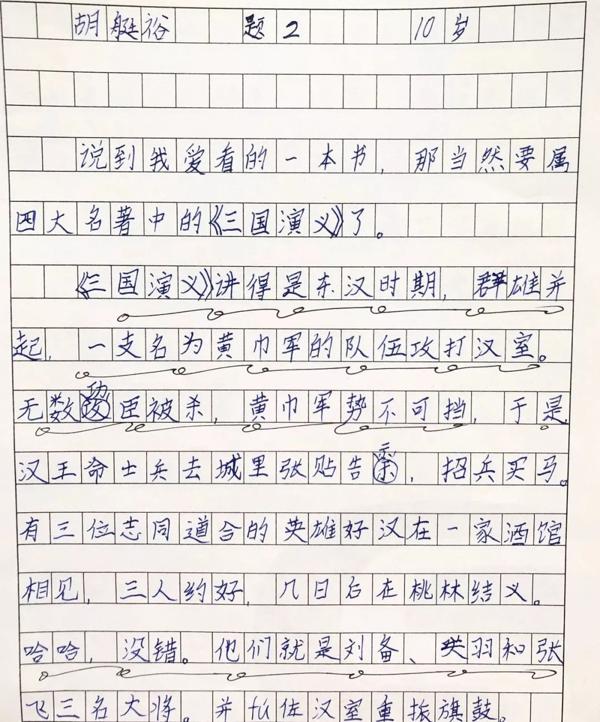 胡艇裕 题2 10岁
说到我爱看的一本书，那当然要属
四大名著中的《三国演义》了。
《三国演义》讲得是东汉时期，群雄并
起，一支名为黄巾军的队伍攻打汉室。
无数功臣被杀，黄巾军势不可挡，于是
汉王命士兵去城里张贴告示，招兵买马。
有三位志同道合的英雄好汉在一家酒馆
相见，三人约好，几日后在桃林结义。
哈哈，没错。他们就是刘备、关羽和张
飞三名大将。并拉住汉室重振旗鼓。